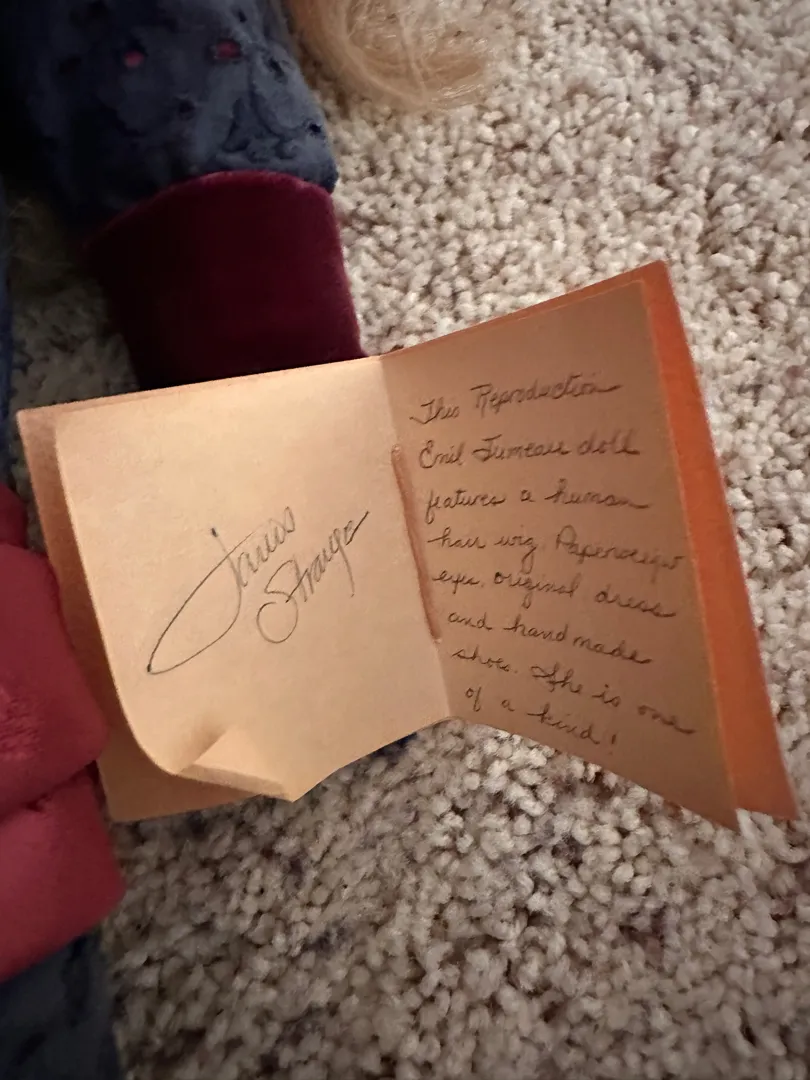 Janiss
Strange
This Reproduction
Emil Jumeau doll
features a human
hair wig, Paperweight
eyes, original dress
and handmade
shoes. She is one
of a kind!